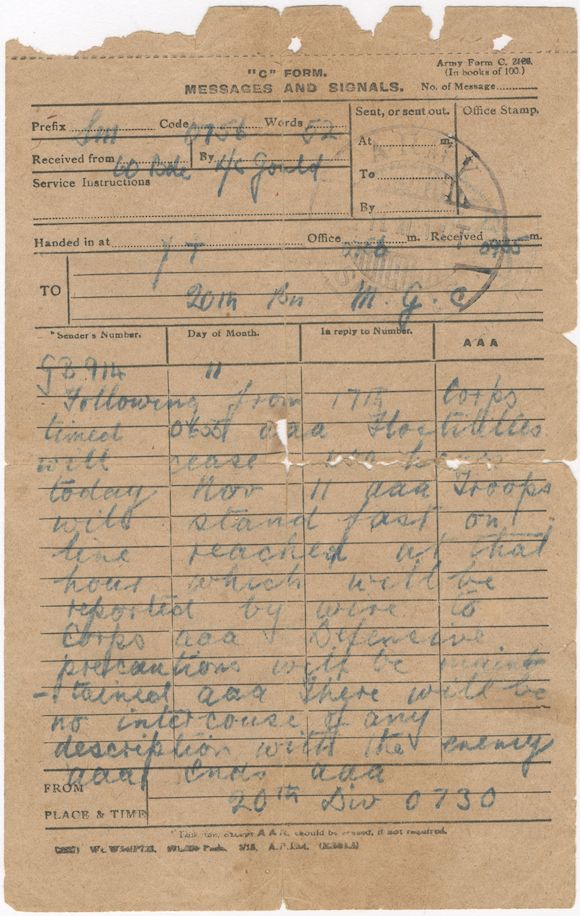 "C" FORM.
MESSAGES AND SIGNALS.
Army Form C. 2123.
(In books of 100.)
No. of Message
Prefix Sm Code 0756 Words 52
Received from 60 Bde By A/c Gould
Service Instructions
Sent, or sent out.
At m.
To
By
Office Stamp.
Handed in at JT Office 0756 m. Received 0935 m.
TO
20th Bn M.G.C
*Sender's Number. Day of Month. In reply to Number. AAA
GB 914 11
Following from 17th Corps
timed 0655 aaa Hostilities
will cease hours
today Nov 11 aaa Troops
will stand fast on
line reached at that
hour which will be
reported by wire to
Corps aaa Defensive
precautions will be maint-
-tained aaa There will be
no intercouse of any
description with the enemy
aaa Ends aaa
FROM
PLACE & TIME
20th Div 0730
* except AAA, should be erased, if not required.